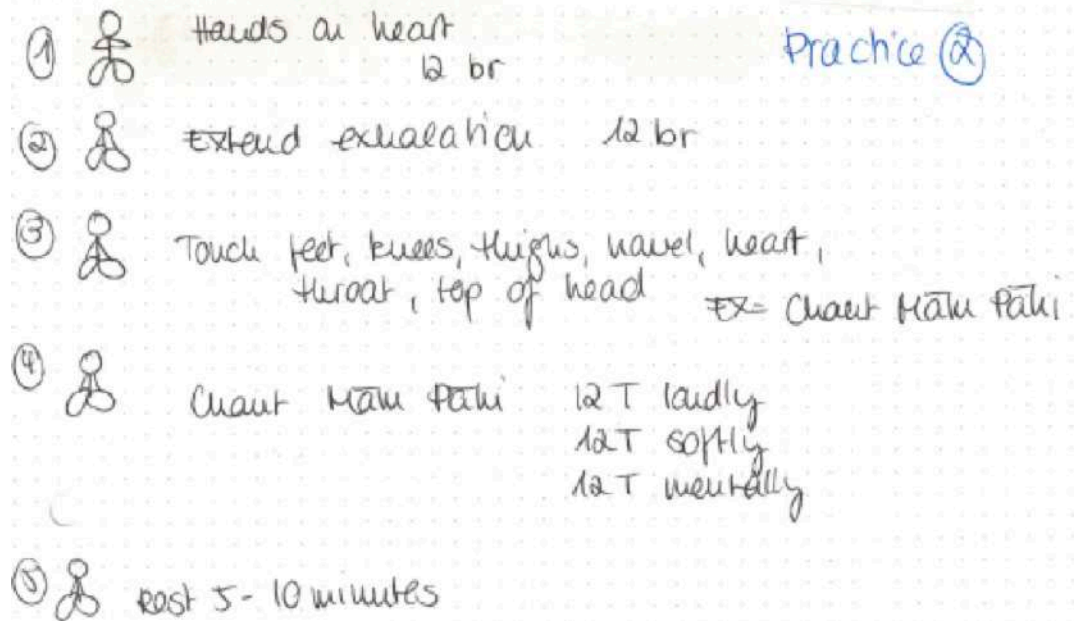 Practice ②
① Hands on heart
12 br
② Extend exhalation 12 br
③ Touch feet, knees, thighs, navel, heart,
throat, top of head
EX = Chant Mām Pāhi
④ Chant Mām Pāhi 12 T loudly
12 T softly
12 T mentally
⑤ Rest 5-10 minutes